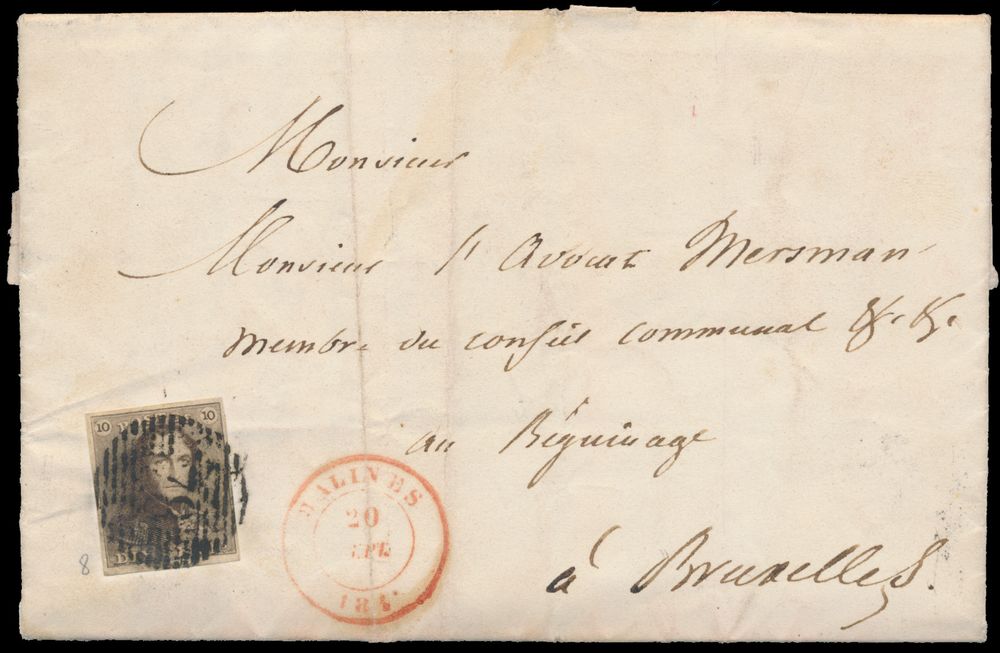 Monsieur
Monsieur l'Avocat Mersman
membre du conseil communal &c. &c.
au Béguinage
à Bruxelles.
10 10
MALINES
20
184
8